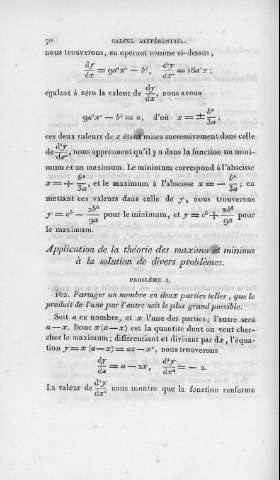 70 CALCUL DIFFÉRENTIEL.
nous trouverons, en opérant comme ci-dessus,
dy/dx = 9a²x² − b⁴, d²y/dx² = 18a²x;
égalant à zéro la valeur de dy/dx, nous avons
9a²x² − b⁴ = 0, d'où x = ± b²/3a;
ces deux valeurs de x étant mises successivement dans celle
de d²y/dx², nous apprennent qu'il y a dans la fonction un mini-
mum et un maximum. Le minimum correspond à l'abscisse
x = + b²/3a, et le maximum à l'abscisse x = − b²/3a; en
mettant ces valeurs dans celle de y, nous trouverons
y = c⁵ − 2b⁶/9a pour le minimum, et y = c⁵ + 2b⁶/9a pour
le maximum.
Application de la théorie des maxima et minima
à la solution de divers problèmes.
PROBLÈME I.
102. Partager un nombre en deux parties telles, que le
produit de l'une par l'autre soit le plus grand possible.
Soit a ce nombre, et x l'une des parties; l'autre sera
a — x. Donc x (a — x) est la quantité dont on veut cher-
cher le maximum; différentiant et divisant par dx, l'équa-
tion y = x (a — x) = ax — x², nous trouverons
dy/dx = a — 2x, d²y/dx² = — 2.
La valeur de d²y/dx² nous montre que la fonction renferme